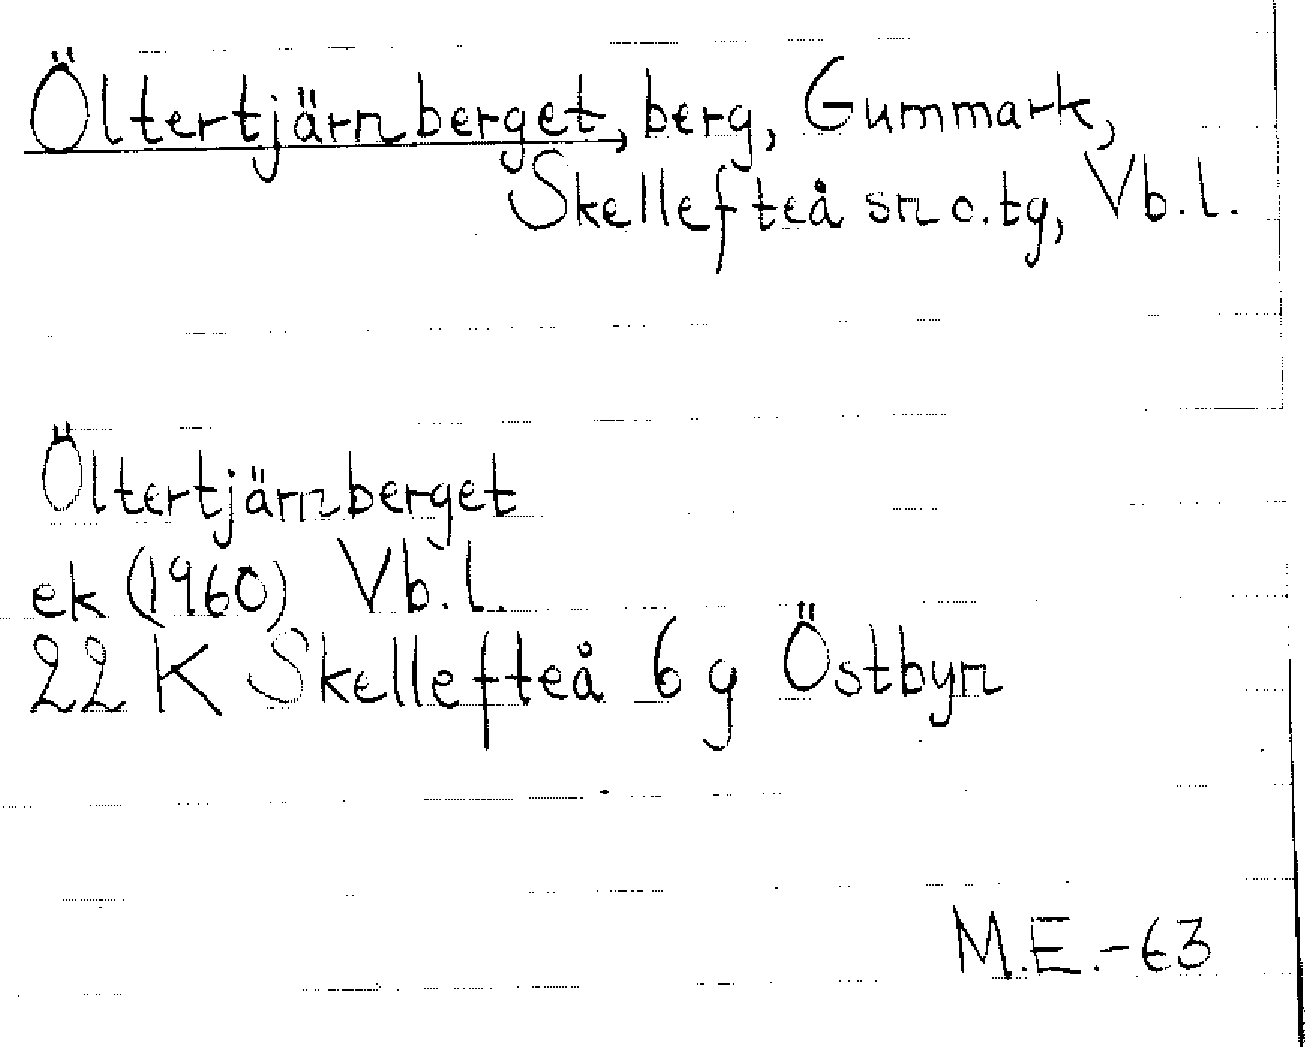 Öltertjärnberget, berg, Gummark,
Skellefteå sn o. tg, Vb. l.
Öltertjärnberget
ek (1960) Vb. l.
22 K Skellefteå 6 g Östbyn
M.E.-63